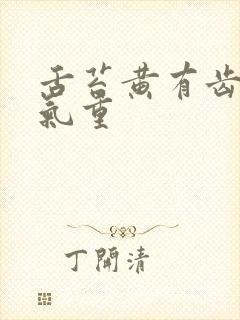 舌苔黄有齿
氣重
丁開清